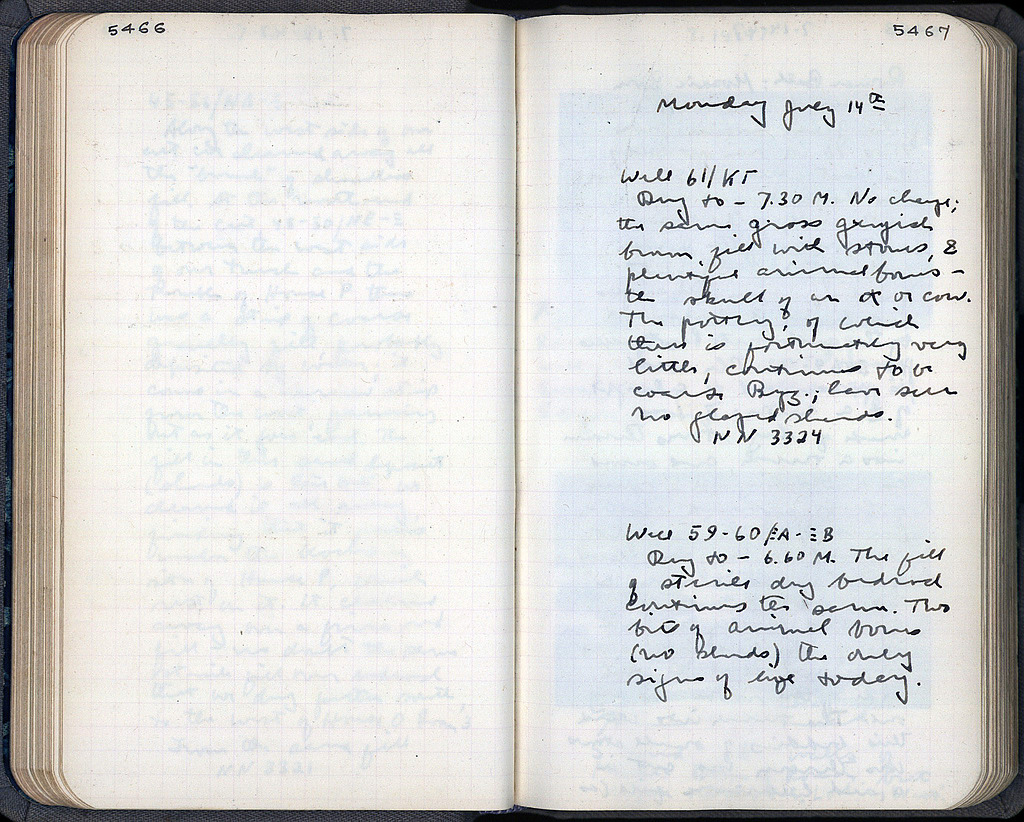 5466
5467
Monday July 14th
Well 61/KT
Dug to - 7.30 M. No change;
the same gross greyish
brown fill with stones, &
plentiful animal bones -
the skull of an ox or cow.
The pottery, of which
there is fortunately very
little, continues to be
coarse Byz.; have seen
no glazed sherds.
NN 3324
Well 59-60/ΞA-ΞB
Dug to - 6.60 M. The fill
of sterile dug bedrock
continues the same. Two
bits of animal bones
(no sherds) the only
signs of life today.